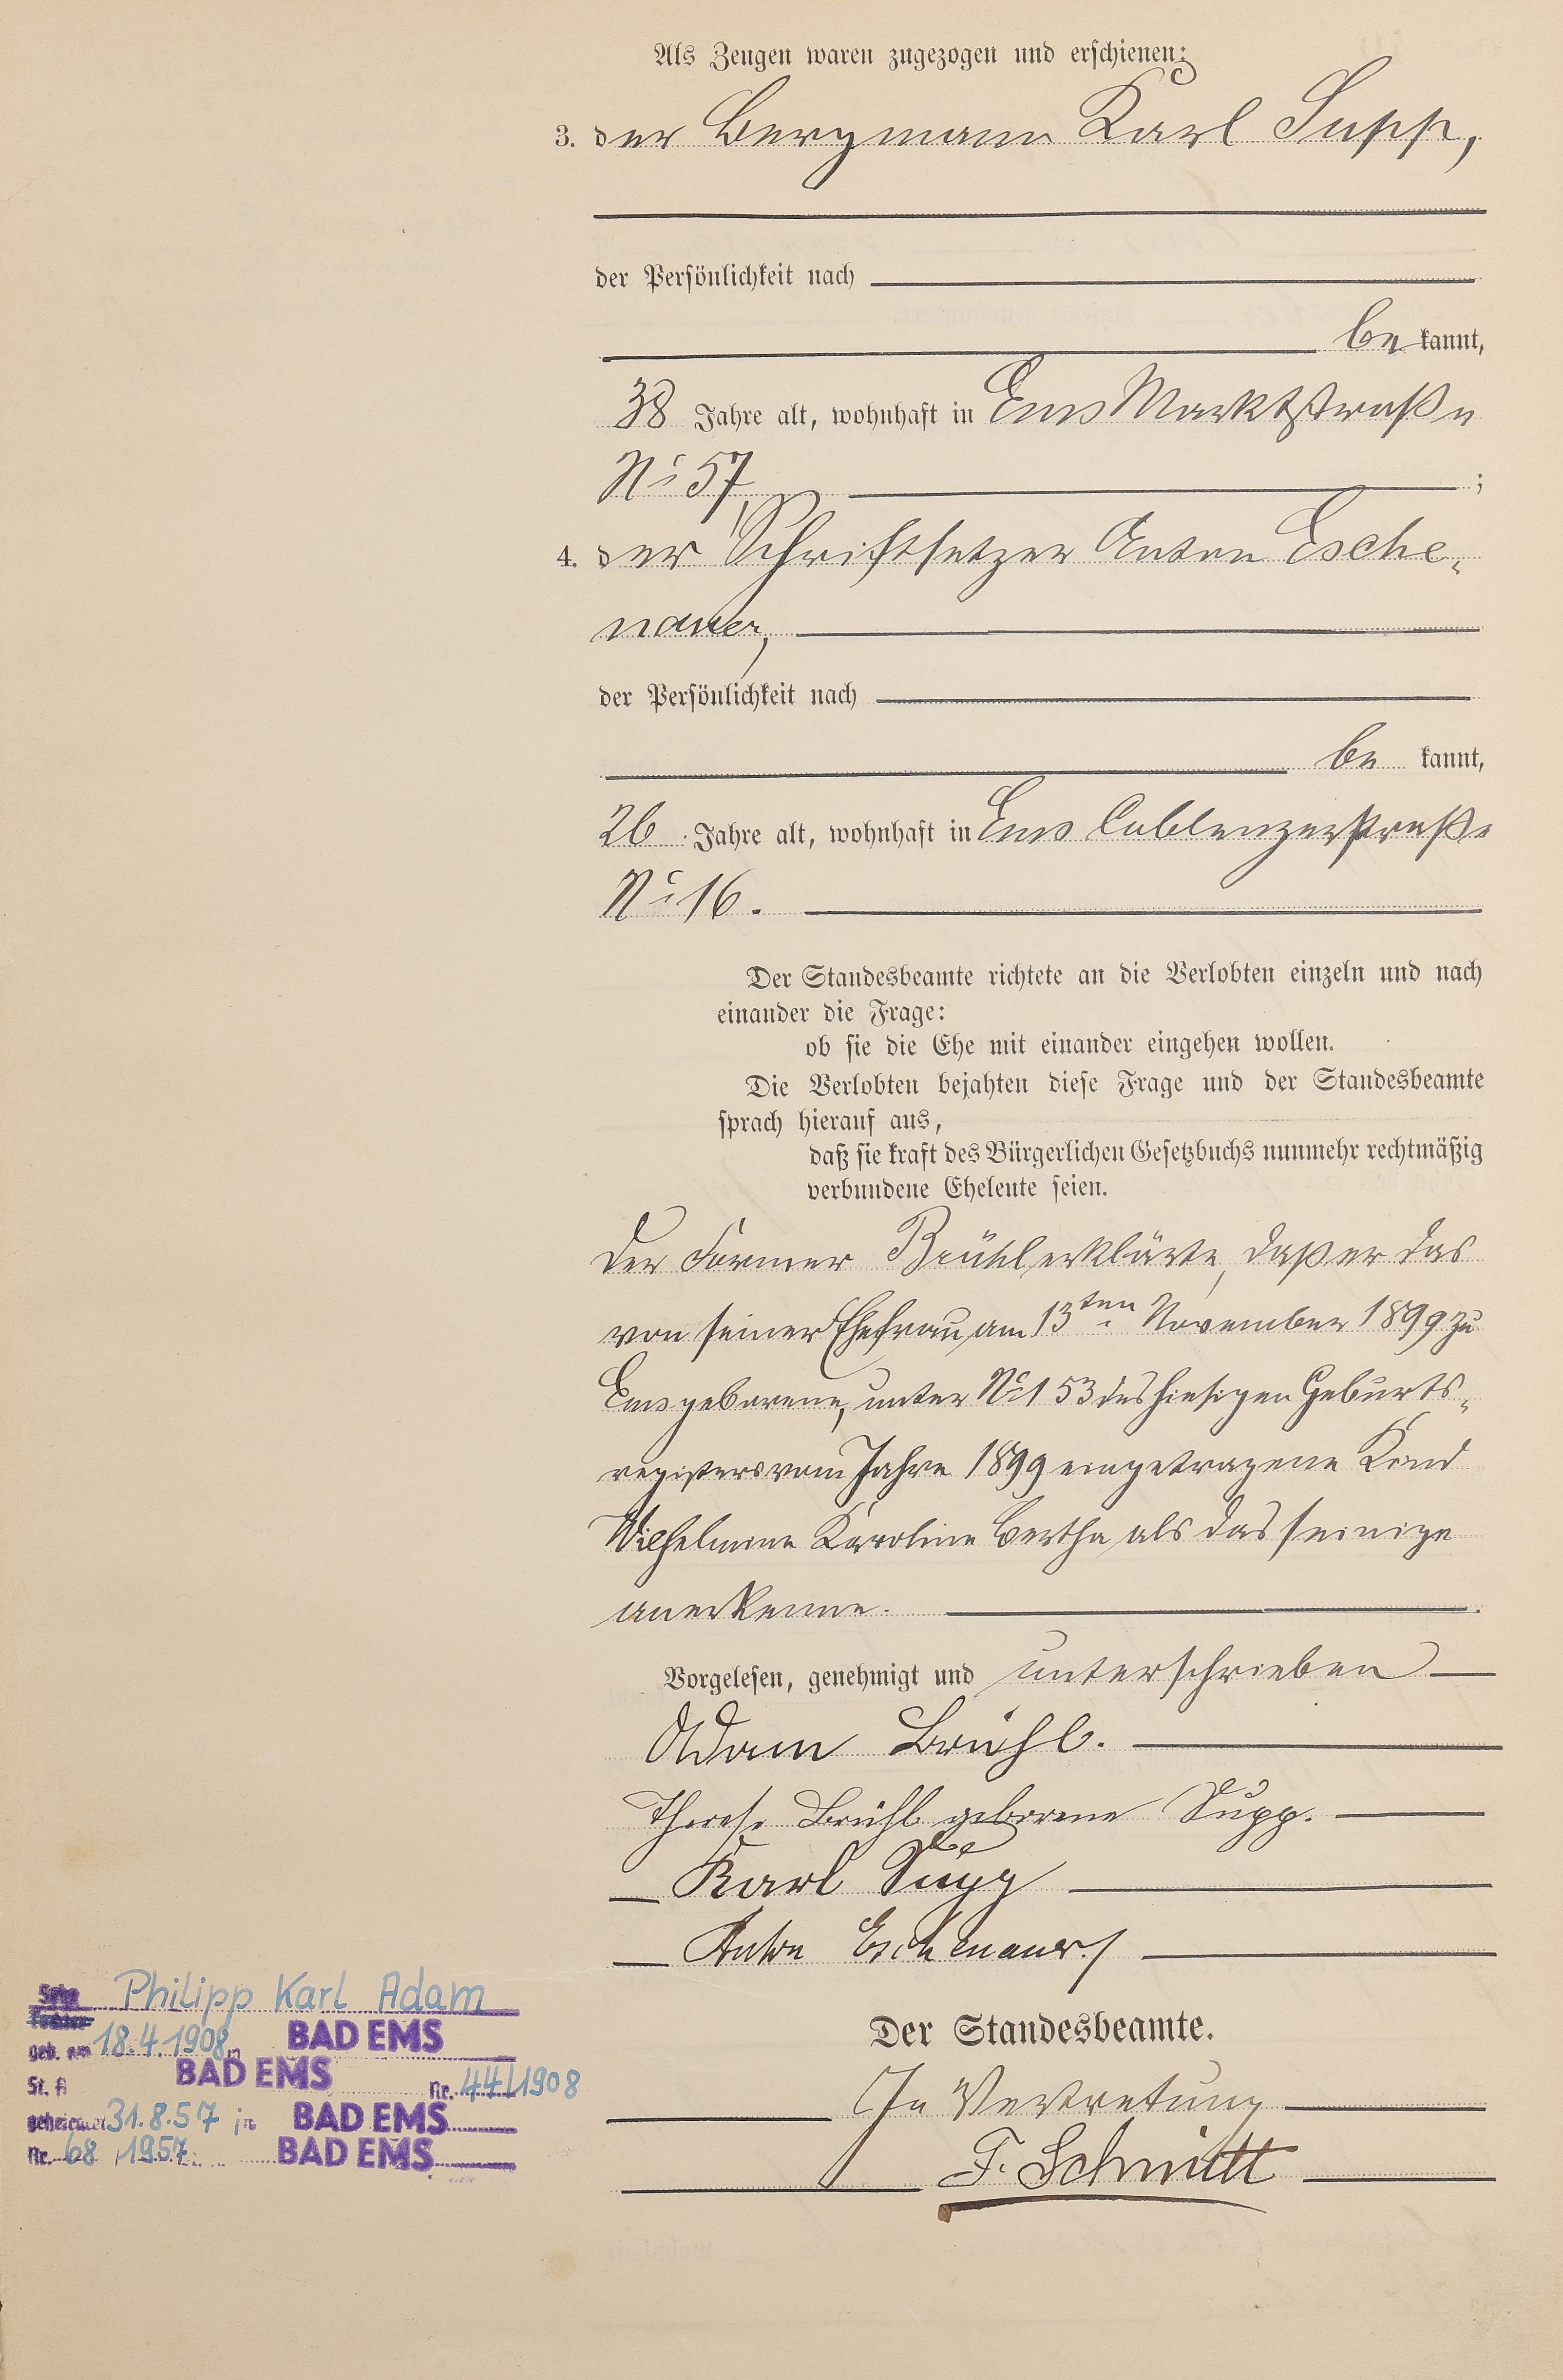 Als Zeugen waren zugezogen und erschienen:
3. der Bergmann Karl Supp,
der Persönlichkeit nach
be kannt,
38 Jahre alt, wohnhaft in Ems Marktstraße
No 57,
;
4. der Schriftsetzer Anton Esche-
nauer,
der Persönlichkeit nach
be kannt,
26 Jahre alt, wohnhaft in Ems Coblenzerstraße
No 16.
Der Standesbeamte richtete an die Verlobten einzeln und nach
einander die Frage:
ob sie die Ehe mit einander eingehen wollen.
Die Verlobten bejahten diese Frage und der Standesbeamte
sprach hierauf aus,
daß sie kraft des Bürgerlichen Gesetzbuchs nunmehr rechtmäßig
verbundene Eheleute seien.
Der Former Brühl erklärte, daß er das
von seiner Ehefrau am 13ten November 1899 zu
Ems geborene, unter No 153 des hiesigen Geburts-
registers vom Jahre 1899 eingetragene Kind
Wilhelmine Karoline Bertha als das seinige
anerkenne.
Vorgelesen, genehmigt und unterschrieben
Adam Brühl.
Therese Brühl geborene Supp.
Karl Supp
Anton Eschenauer
Der Standesbeamte.
In Vertretung
F. Schmitt
Sohn Philipp Karl Adam
Tochter
geb. am 18.4.1908 in BAD EMS
St. A BAD EMS Nr. 44/1908
geheiratet 31.8.57 in BAD EMS
Nr. 68/1957 BAD EMS